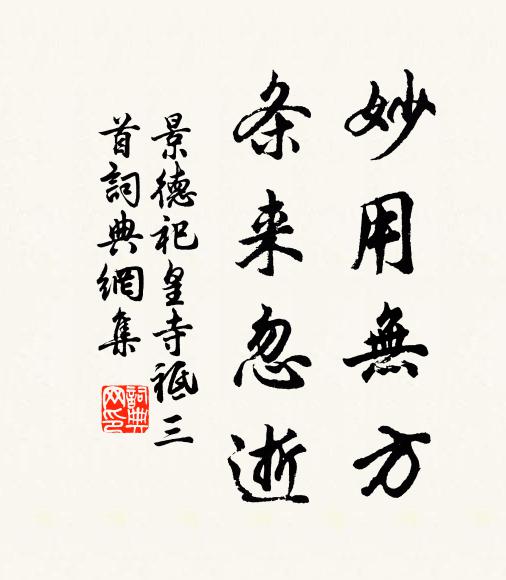 妙用無方
条来忽逝
景德祀皇寺祗三
首詞典網集
詞典
网印